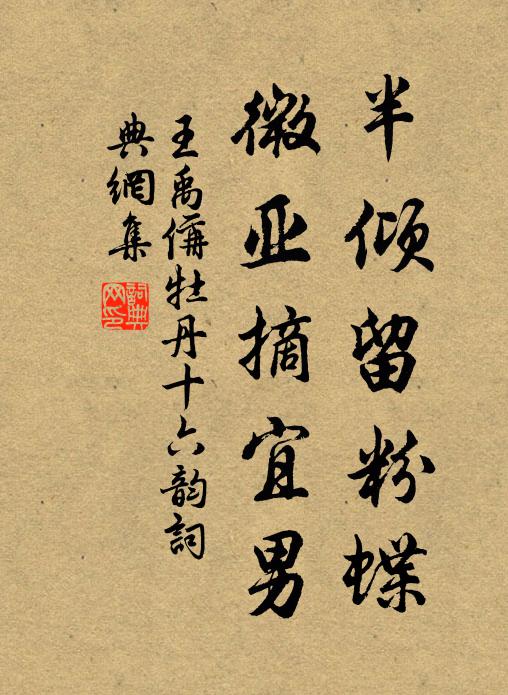 半倾留粉蝶
微亚摘宜男
王禹偁牡丹十六韵詞
典網集
詞典
网印